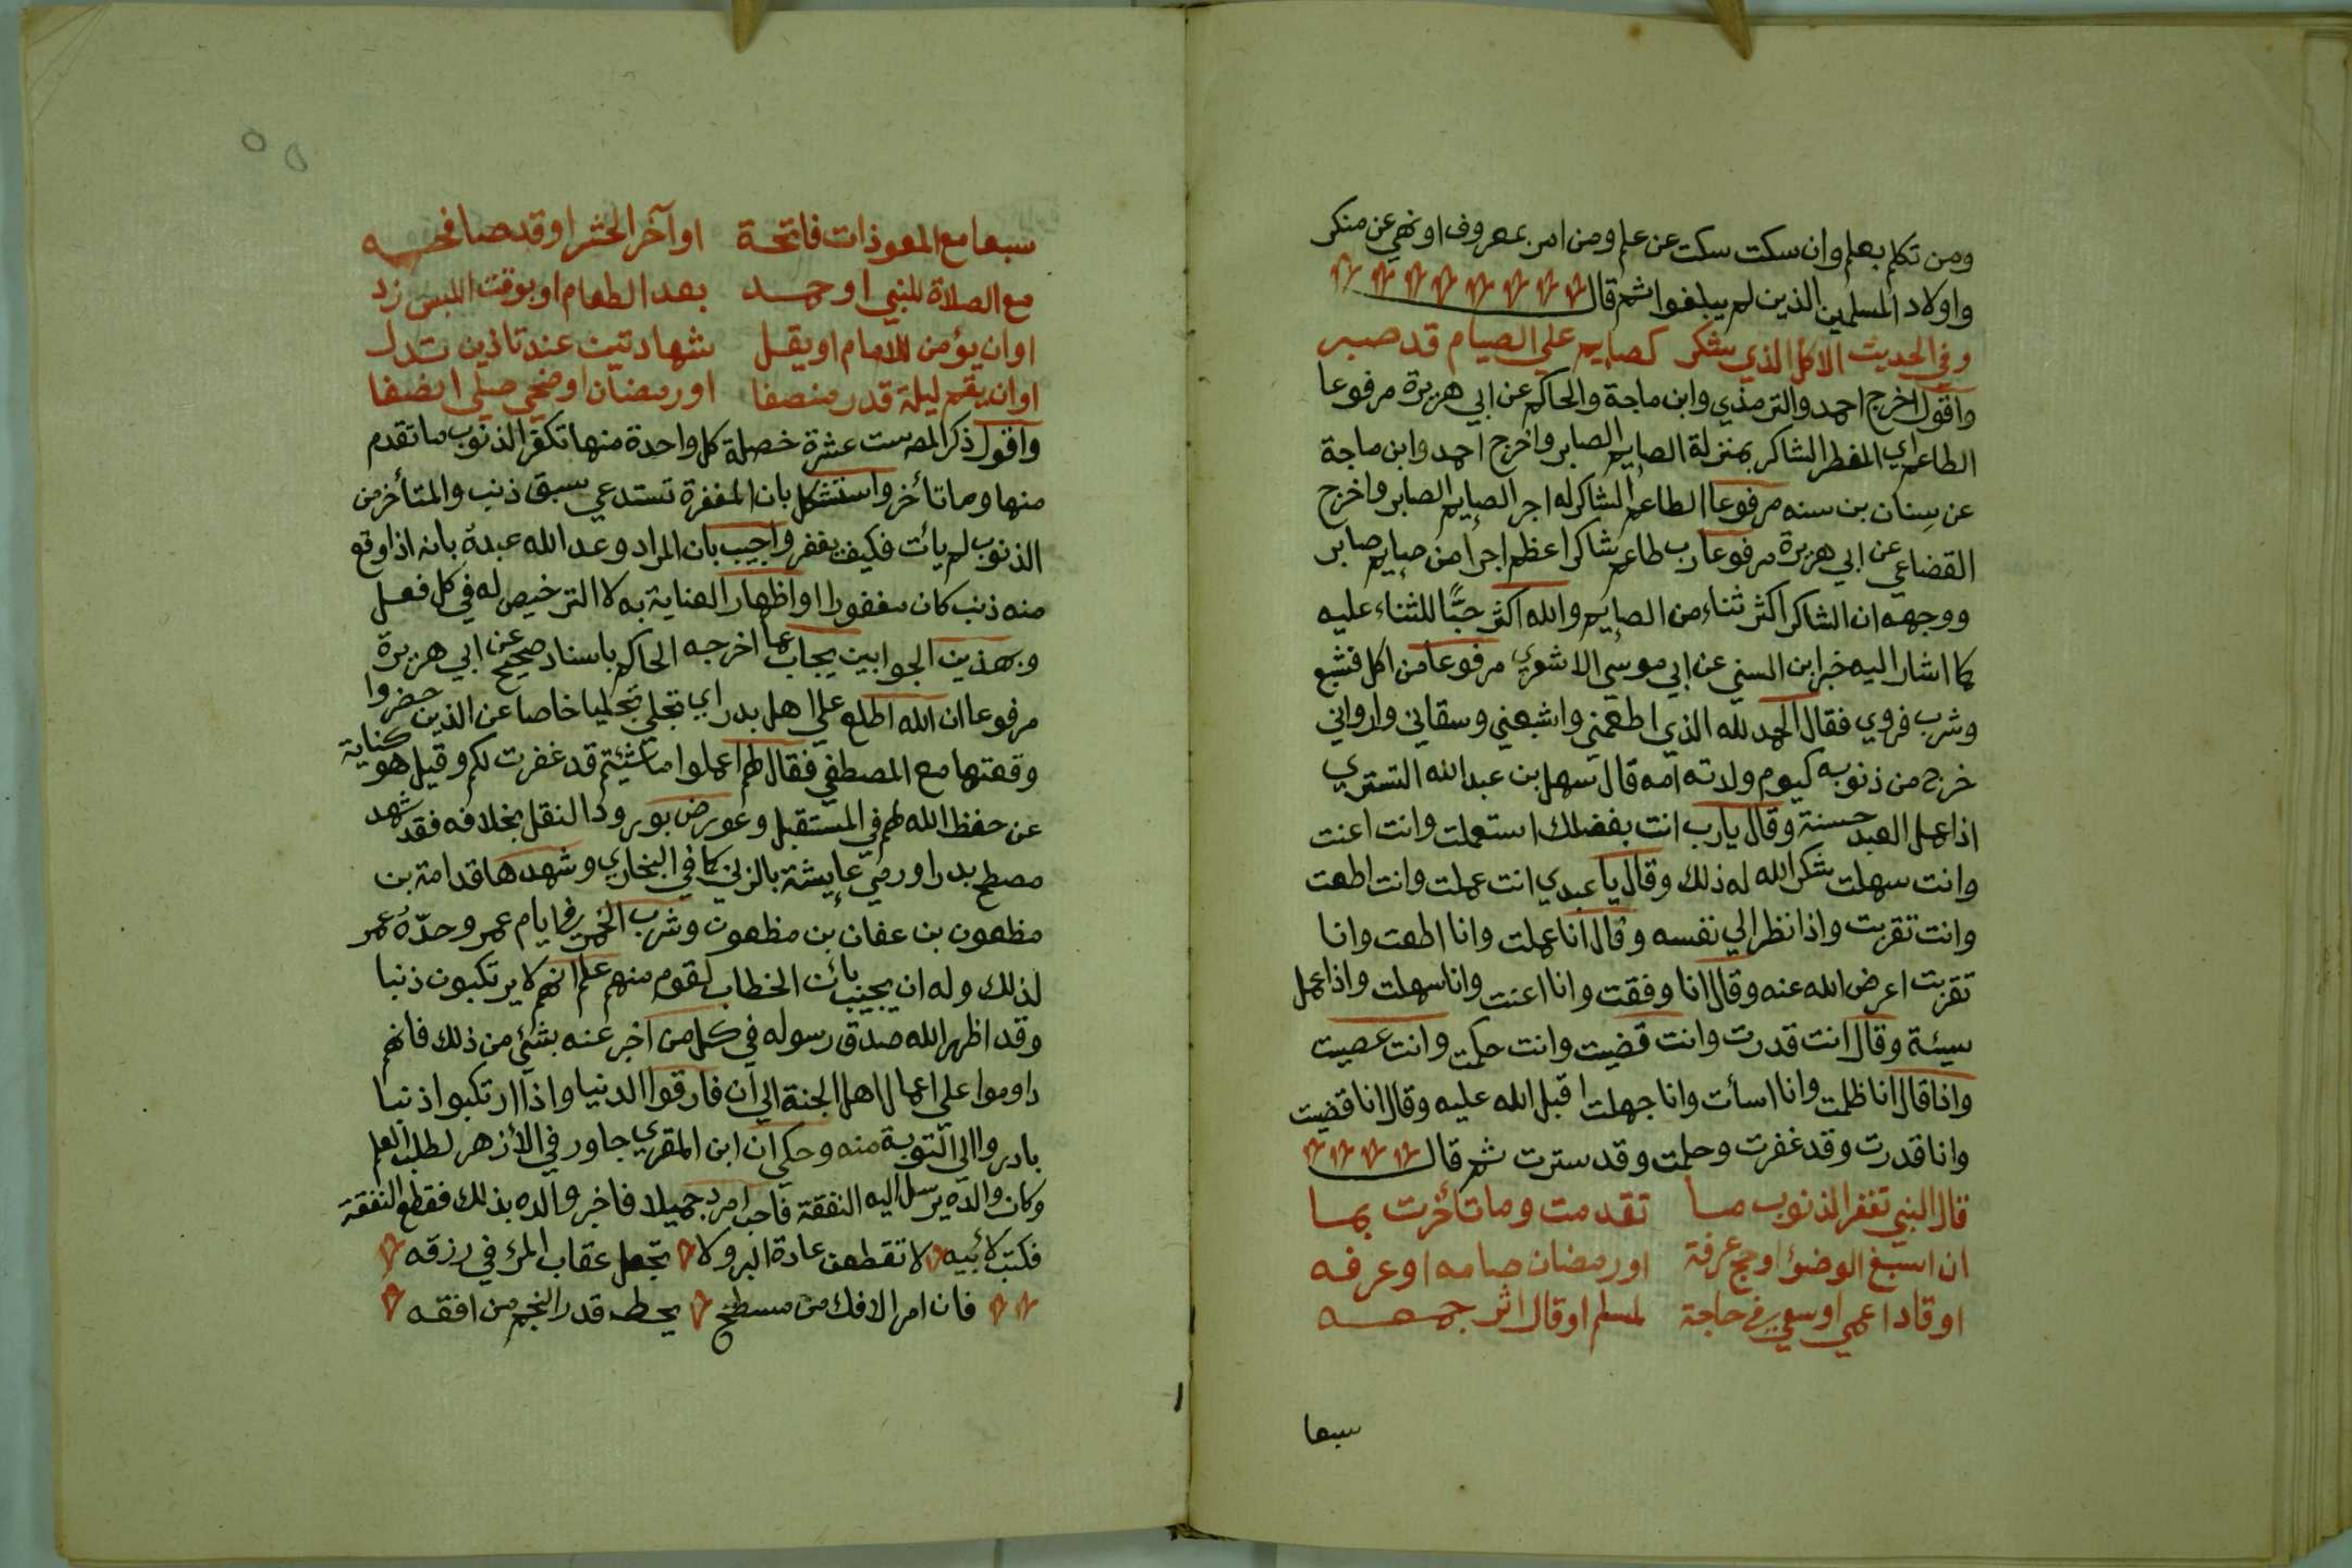 ومن تكلم بعلم وان سكت سكت عن علم ومن امر بمعروف او نهي عن منكر
واولاد المسلمين الذين لم يبلغوا ثم قال
وفي الحديث الاكل الذي شكر كصايم علي الصيام قد صبر
واقول اخرج احمد والترمذي وابن ماجة والحاكم عن ابي هريرة مرفوعا
الطاعم اي المفطر الشاكر بمنزلة الصايم الصابر واخرج احمد وابن ماجة
عن سنان بن سنه مرفوعا الطاعم الشاكر له اجر الصايم الصابر واخرج
القضاعي عن ابي هريرة مرفوعا رب طاعم شاكر اعظم اجرا من صايم صابر
ووجهه ان الشاكر اكثر ثناء من الصايم والله اكثر حبًّا للثناء عليه
كما اشار اليه خبر ابن السني عن ابي موسي الاشعري مرفوعا من اكل فشبع
وشرب فروي فقال الحمد لله الذي اطعمني واشبعني وسقاني وارواني
خرج من ذنوبه كيوم ولادته امه قال سهل بن عبد الله التستري
اذا عمل العبد حسنة وقال يا رب انت بفضلك استعملت وانت اعنت
وانت سهلت شكر الله له ذلك وقال يا عبدي انت عملت وانت اطعت
وانت تقربت واذا نظر الي نفسه وقال انا عملت وانا اطعت وانا
تقربت اعرض الله عنه وقال انا وفقت وانا اعنت وانا سهلت واذا عمل
سيئة وقال انت قدرت وانت قضيت وانت حكمت وانت عصيت
واذا قال انا ظلمت وانا اسأت وانا جهلت اقبل الله عليه وقال انا قضيت
وانا قدرت وقد غفرت وحلمت وقد سترت ثم قال
قال النبي تغفر الذنوب ما تقدمت وما تأخرت بما
ان اسبغ الوضؤ او حج عرفة او رمضان صامه او عرفه
او قاد اعمي او سعي في حاجة لمسلم او قال اثر جمعه
سبعا
سبعا مع المعوذات فاتحة او آخر الحشر او قد صافحه
مع الصلاة للنبي او حمد بعد الطعام او بوقت اللبس زد
او ان يؤمن للامام او يقل شهادتين عند تاذين تدل
او ان يقم ليلة قدر منصفا او رمضان او ضحي صلي انصفا
واقول ذكر المص ست عشرة خصلة كل واحدة منها تكفر الذنوب ما تقدم
منها وما تأخر واستشكل بان المغفرة تستدعي سبق ذنب والمتأخر من
الذنوب لم يأت فكيف يغفر واجيب بان المراد وعد الله عبده بانه اذا وقع
منه ذنب كان مغفورا او اظهار العناية به لا الترخيص له في كل فعل
وبهذين الجوابين يجاب عما اخرجه الحاكم باسناد صحيح عن ابي هريرة
مرفوعا ان الله اطلع علي اهل بدر اي تجلي تجليا خاصا عن الذين حضروا
وقعتها مع المصطفي فقال لهم اعملوا ما شئتم قد غفرت لكم وقيل هو كناية
عن حفظ الله لهم في المستقبل وعورض بورود النقل بخلافه فقد شهد
مصطح بدرا ورمي عايشة بالزني كما في البخاري وشهدها قدامة بن
مظعون بن عفان بن مظعون وشرب الخمر في ايام عمر وحدّهُ عمر
لذلك وله ان يجيب بان الخطاب لقوم منهم علم انهم لا يرتكبون ذنبا
وقد اظهر الله صدق رسوله في كل من اخبر عنه بشئ من ذلك فانهم
داوموا علي اعمال اهل الجنة الي ان فارقوا الدنيا واذا ارتكبوا ذنبا
بادروا الي التوبة منه وحكي ان ابن المقري جاور في الأزهر لطلب العلم
وكان والده يرسل اليه النفقة فاحب امرد جميلا فاخبر والده بذلك فقطع النفقة
فكتب لأبيه لا تقطعن عادة البر ولا تجعل عقاب المرء في رزقه
فان امر الافك من مسطح يحط قدر النجم من افقه